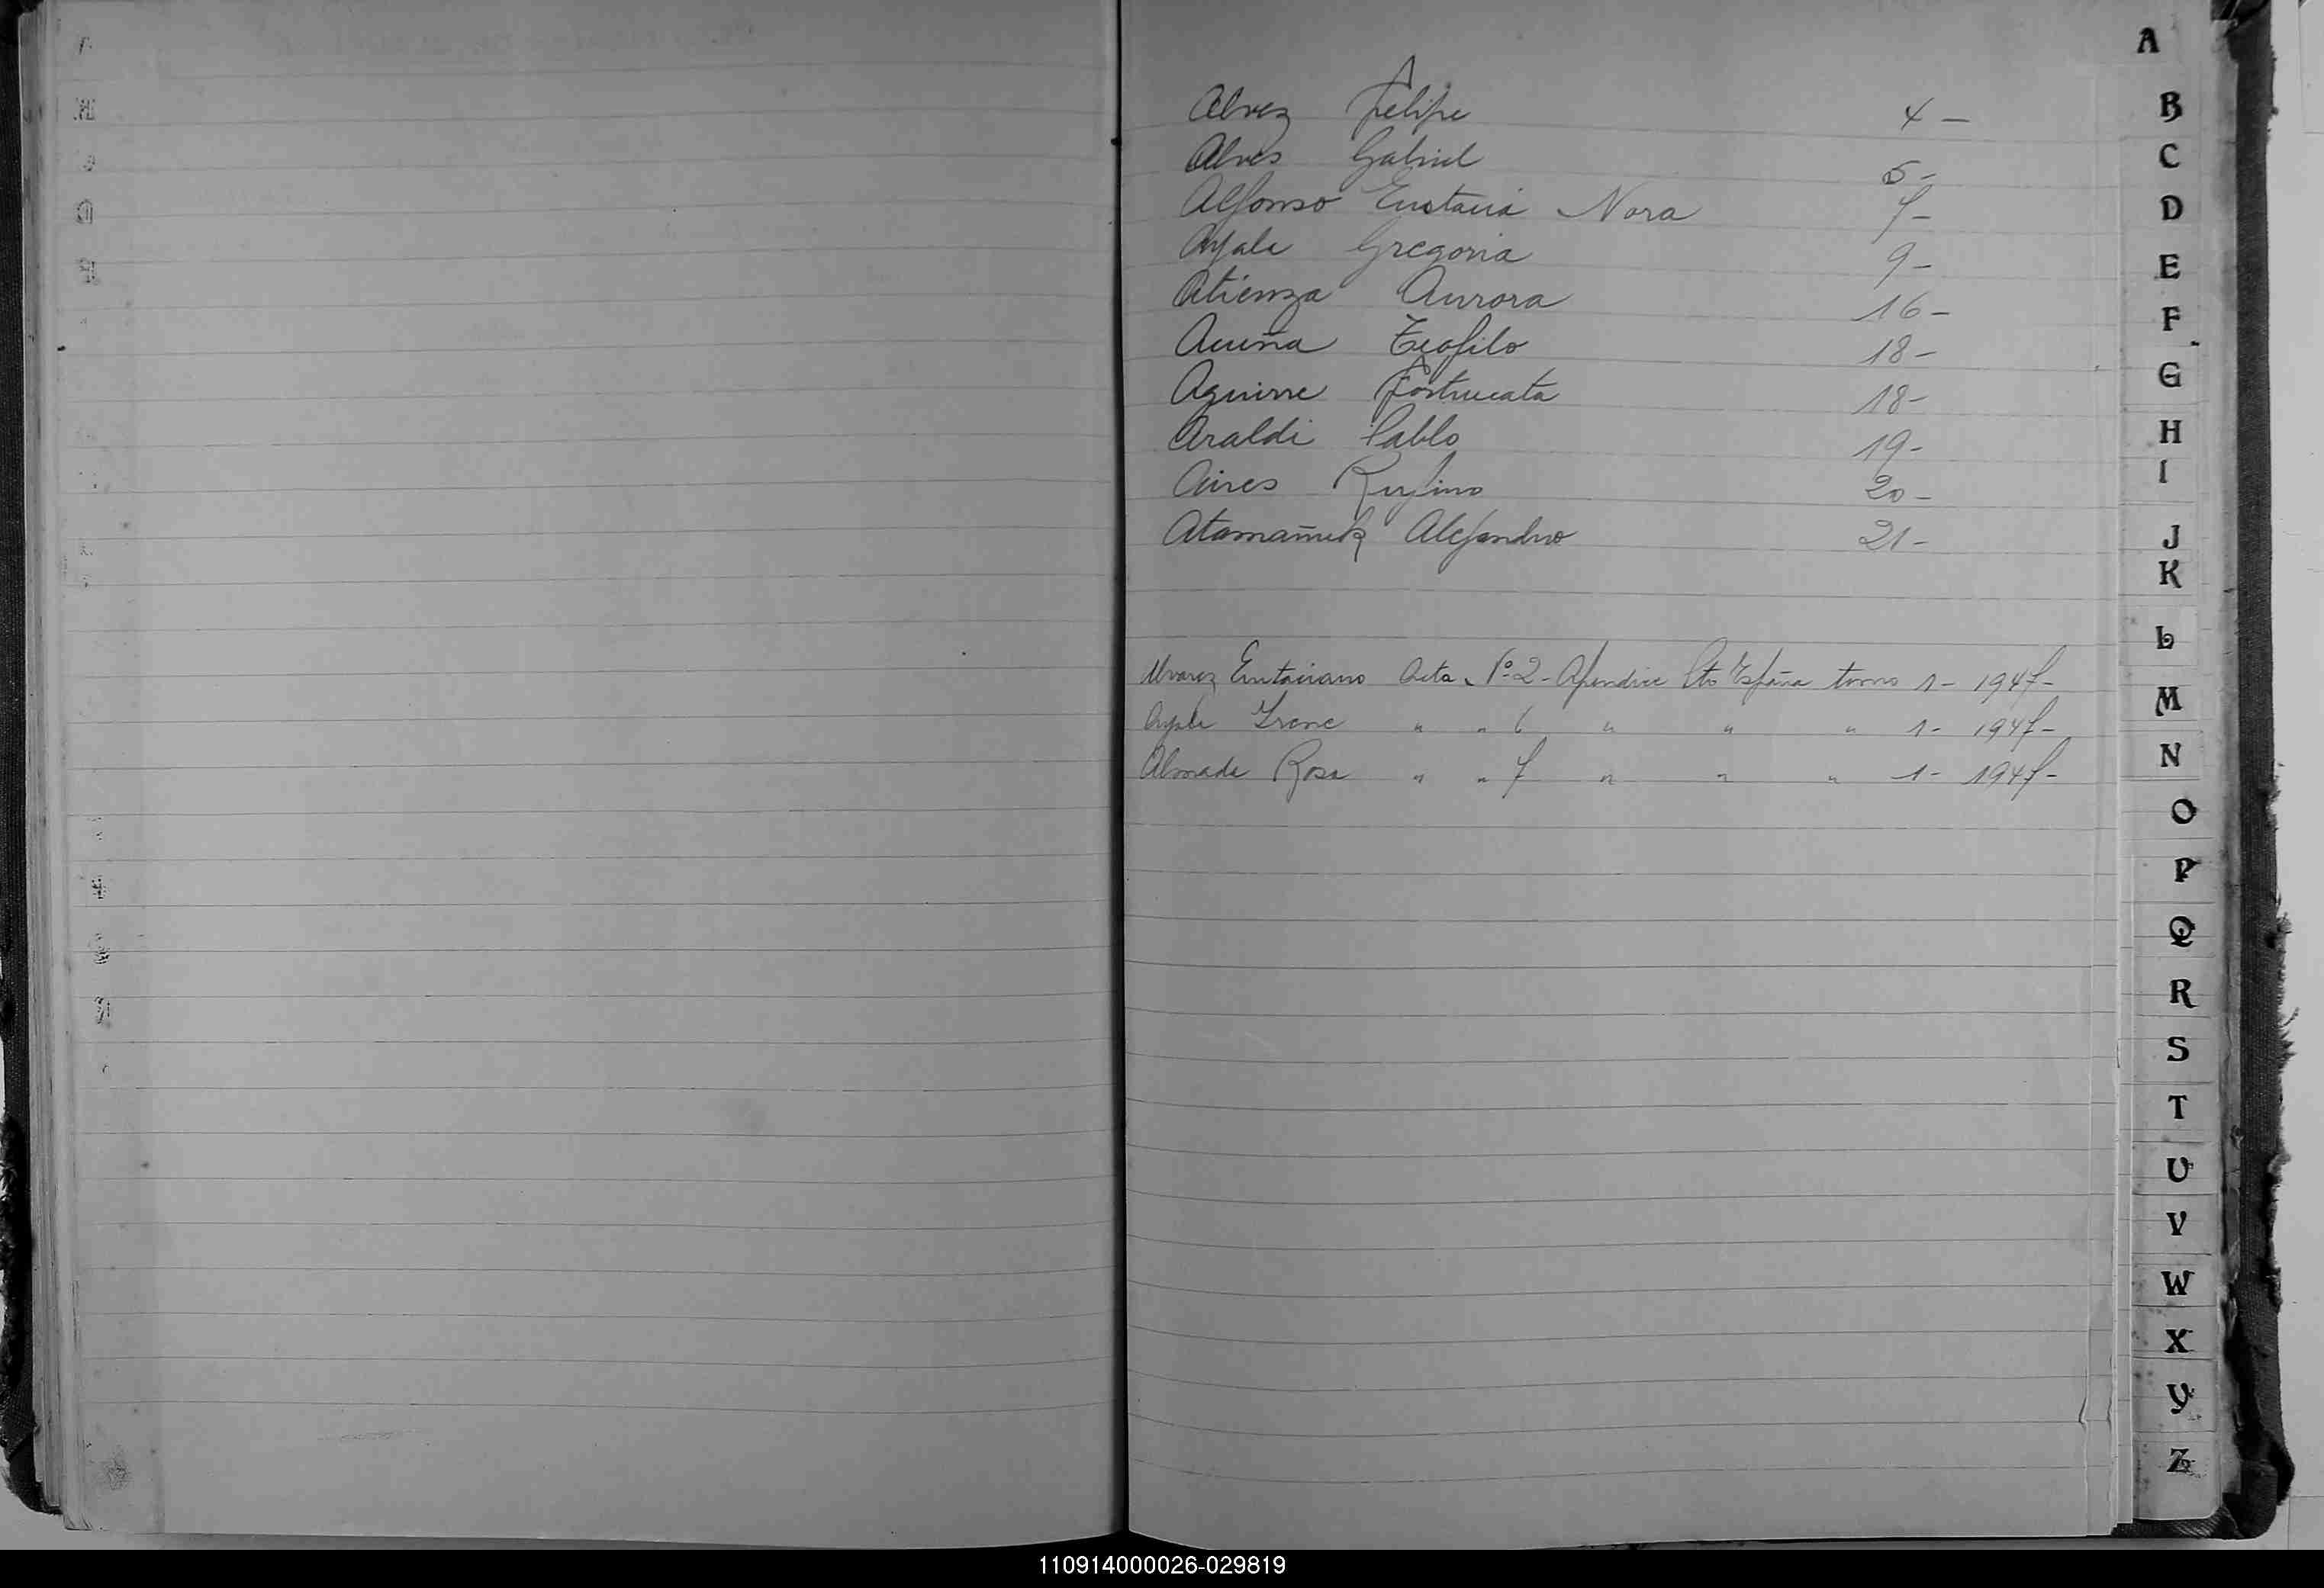 A
Alvez Felipe 4 -
B
Alves Gabriel 5 -
C
Alfonso Eustacia Nora 7 -
D
Ayala Gregoria 9 -
E
Atienza Aurora 16 -
F
Acuña Teofilo 18 -
G
Aguirre 18 -
H
Araldi Pablo 19 -
I
Aires Rufino 20 -
Atamañuk Alejandro 21 -
J
K
L
Alvarez Eustaciano Acta Nº 2 - Apendice Pto España tomo 1 - 1947 -
M
Ayala Irene " " 6 " " " 1 - 1947 -
N
Almada Rosa " " 7 " " " 1 - 1947 -
O
P
Q
R
S
T
U
V
W
X
Y
Z
110914000026-029819